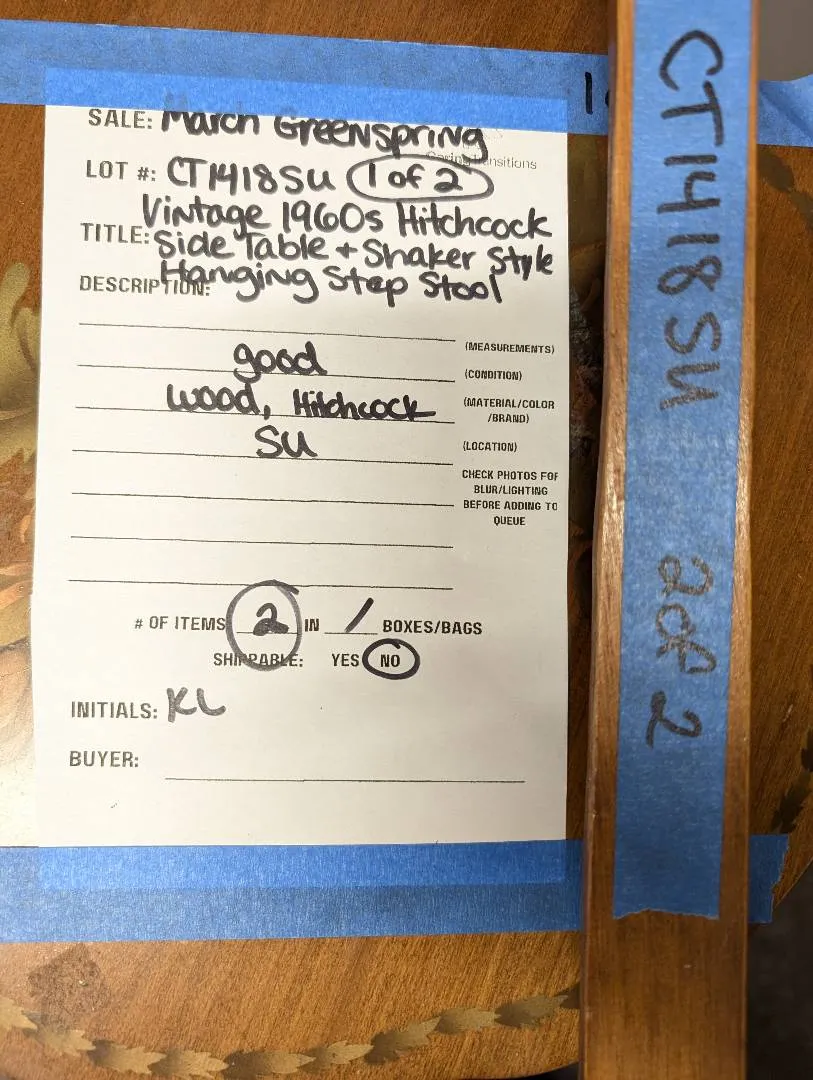 SALE: March Greenspring
Caring Transitions
LOT #: CT1418SU 1 of 2
Vintage 1960s Hitchcock
TITLE: Side Table + Shaker Style
DESCRIPTION: Hanging Step Stool
(MEASUREMENTS)
good (CONDITION)
wood, Hitchcock (MATERIAL/COLOR
/BRAND)
SU (LOCATION)
CHECK PHOTOS FOR
BLUR/LIGHTING
BEFORE ADDING TO
QUEUE
# OF ITEMS 2 IN / BOXES/BAGS
SHIPPABLE: YES NO
INITIALS: KL
BUYER:
CT1418SU 2 of 2